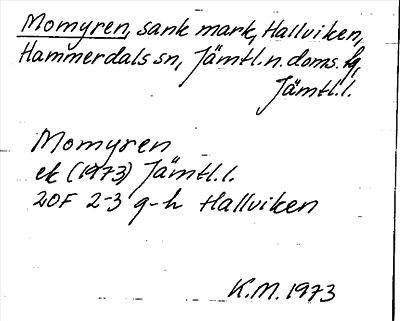 Momyren, sank mark, Hallviken,
Hammerdals sn, Jämtl.n. doms. fg,
Jämtl.l.
Momyren
ek (1973) Jämtl.l.
20F 2-3 g-h Hallviken
K.M. 1973